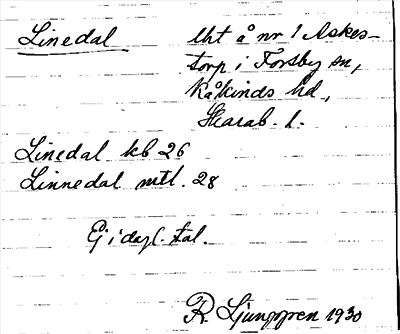 Linedal
Uht å nr 1 Askes-
torp i Forsby sn,
Kåkinds hd,
Skarab. l.
Linedal kb 26
Linnedal mtl. 28
Ej i dagl. tal.
R. Ljunggren 1930